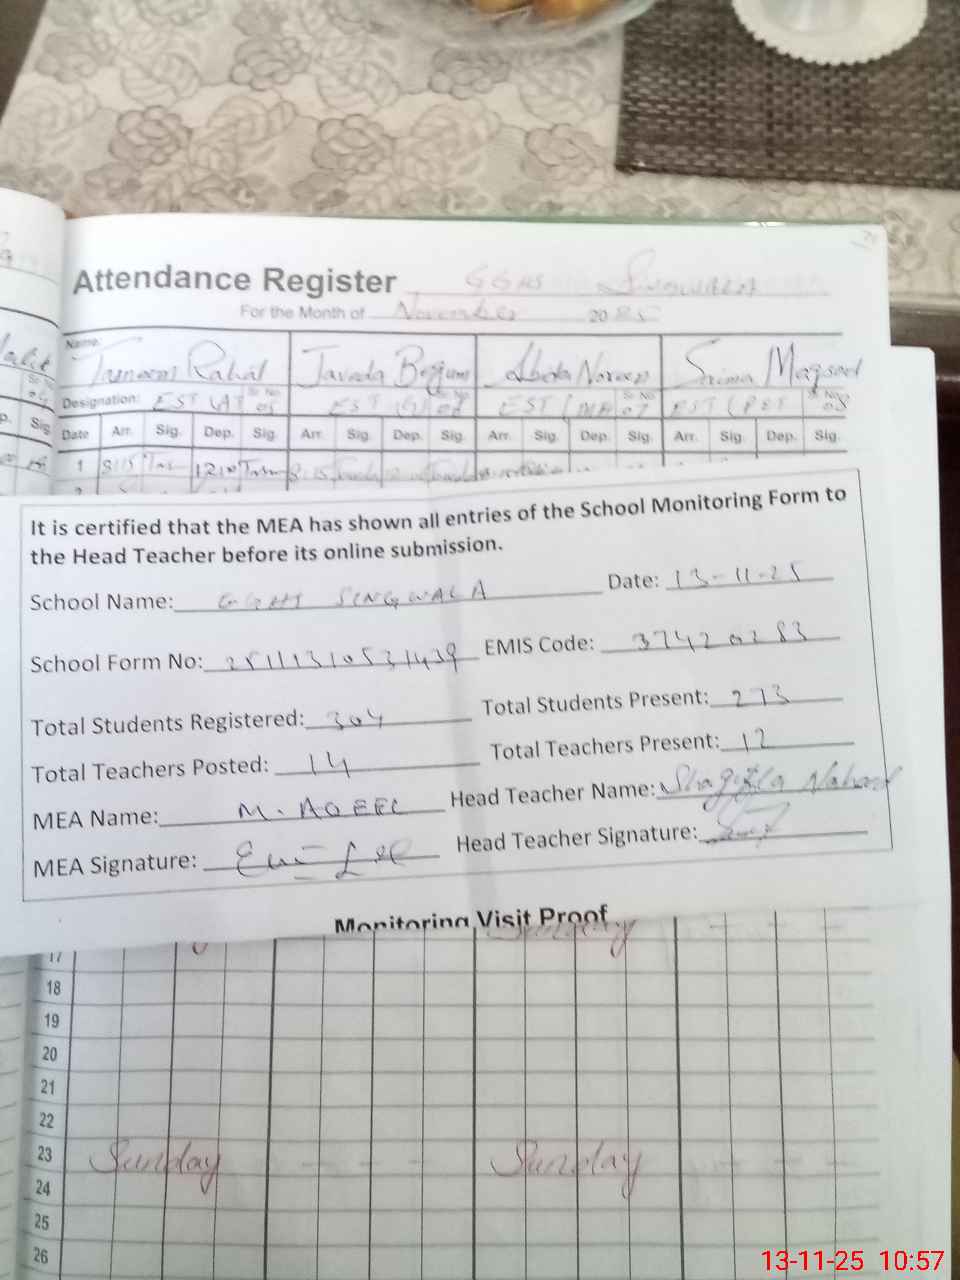 Attendance Register GGHS SINGWALA
For the Month of November 20
Name:
Javada Begum Abeda Noreen
Designation: EST (AT Sr No 05 EST Sr No EST Sr No 07 EST (PET Sr No 08
Date Arr. Sig. Dep. Sig. Arr. Sig. Dep. Sig. Arr. Sig. Dep. Sig. Arr. Sig. Dep. Sig.
1 8:15 12:10 8:15
It is certified that the MEA has shown all entries of the School Monitoring Form to
the Head Teacher before its online submission.
School Name: GGHS SINGWALA Date: 13-11-25
School Form No: EMIS Code: 37420283
Total Students Registered: 304 Total Students Present: 273
Total Teachers Posted: 14 Total Teachers Present: 12
MEA Name: M. AQEEL Head Teacher Name:
MEA Signature: Head Teacher Signature:
Monitoring Visit Proof
17 Sunday
18
19
20
21
22
23 Sunday Sunday
24
25
26
13-11-25 10:57